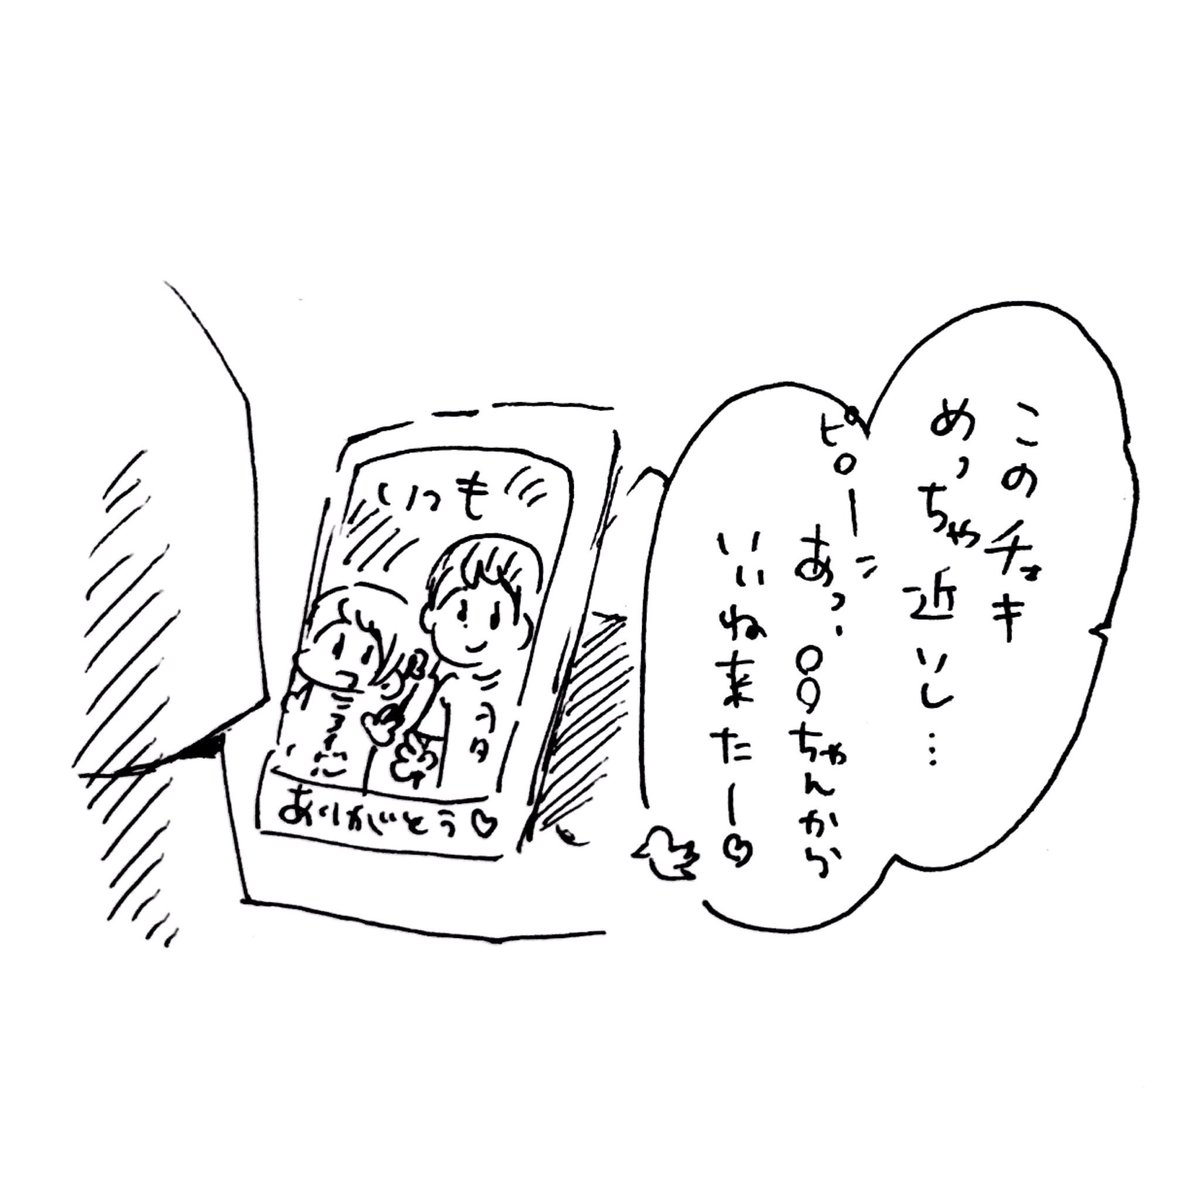 このチェキ
めっちゃ近いし…
ピローン
あっ、○○ちゃんから
いいね来たー♡
いつも
ヲタ
ありがとう♡